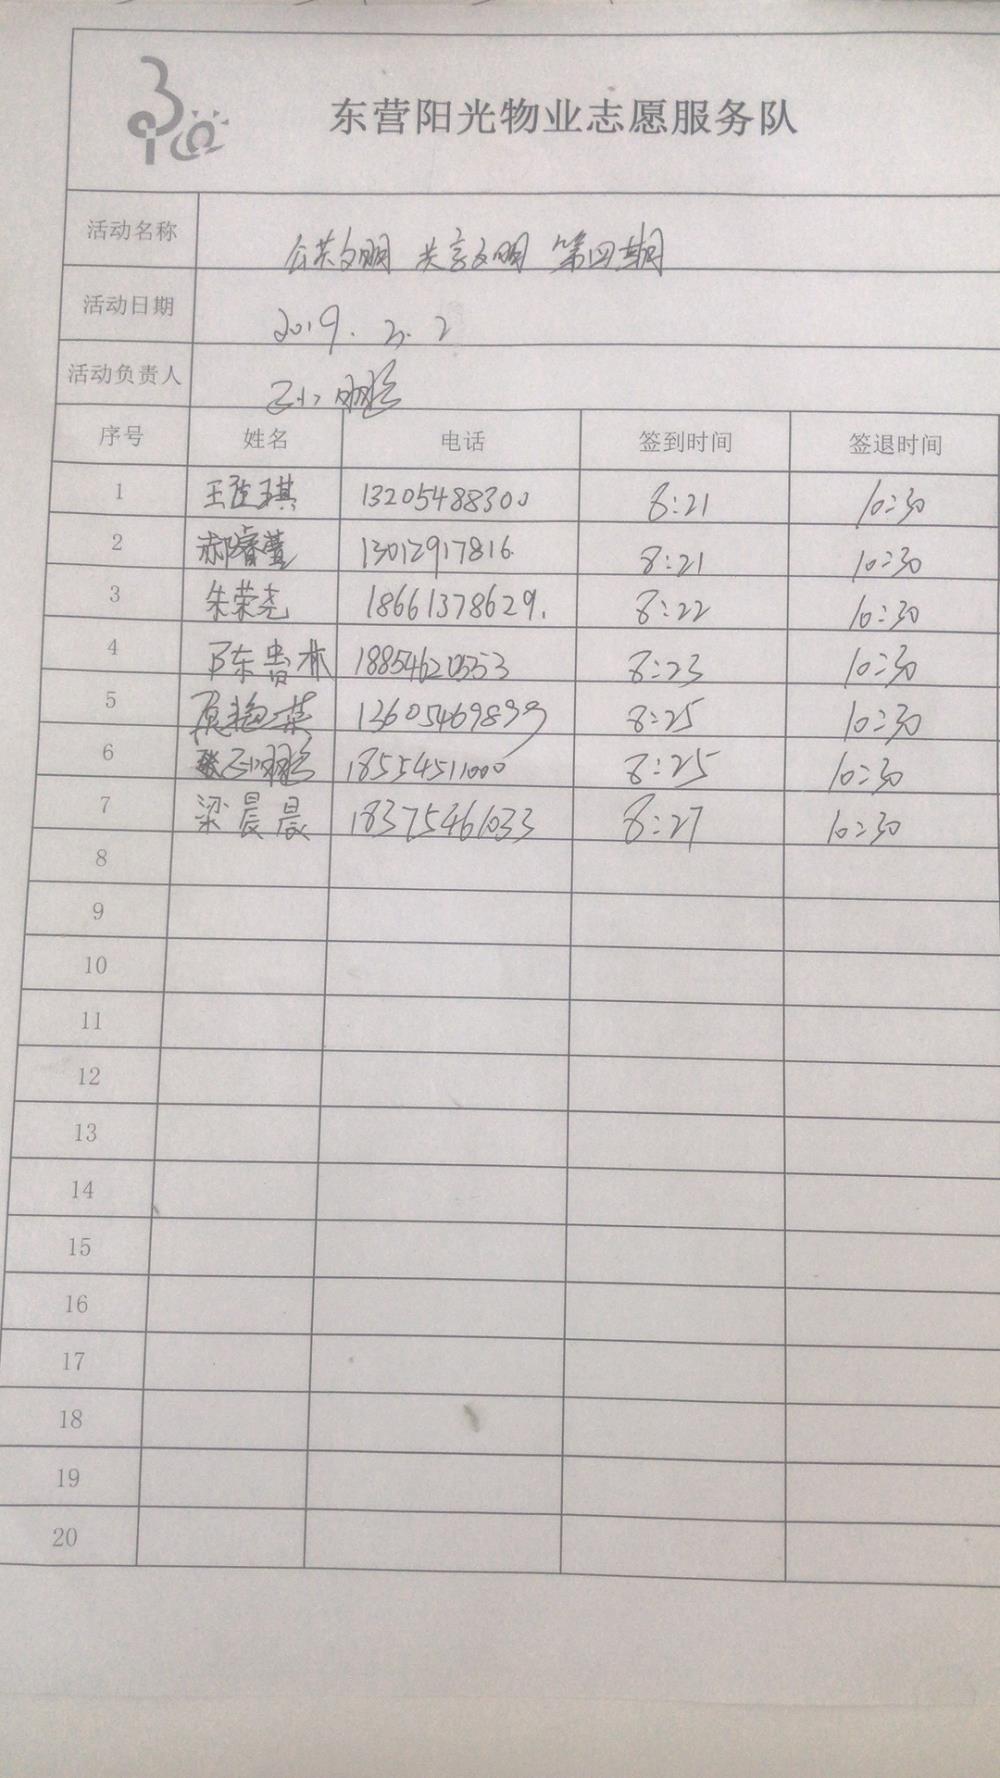 东营阳光物业志愿服务队
活动名称 公共文明 共享文明 第四期
活动日期 2019.2.2
活动负责人
序号 姓名 电话 签到时间 签退时间
1 王 琪 13205488300 8:21 10:30
2 郝睿萱 13012917816 8:21 10:30
3 朱荣尧 18661378629. 8:22 10:30
4 陈鲁林 18854620553 8:23 10:30
5 13605469899 8:25 10:30
6 18554511000 8:25 10:30
7 梁晨晨 18375461033 8:27 10:30
8
9
10
11
12
13
14
15
16
17
18
19
20